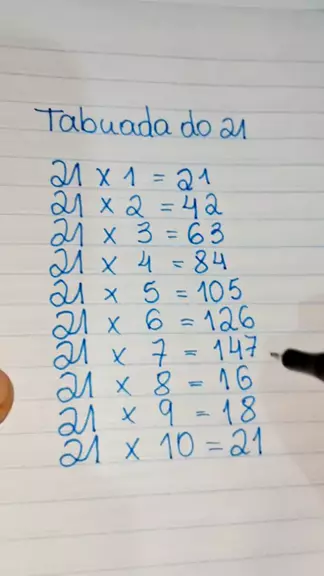 Tabuada do 21
21 x 1 = 21
21 x 2 = 42
21 x 3 = 63
21 x 4 = 84
21 x 5 = 105
21 x 6 = 126
21 x 7 = 147
21 x 8 = 16
21 x 9 = 18
21 x 10 = 21